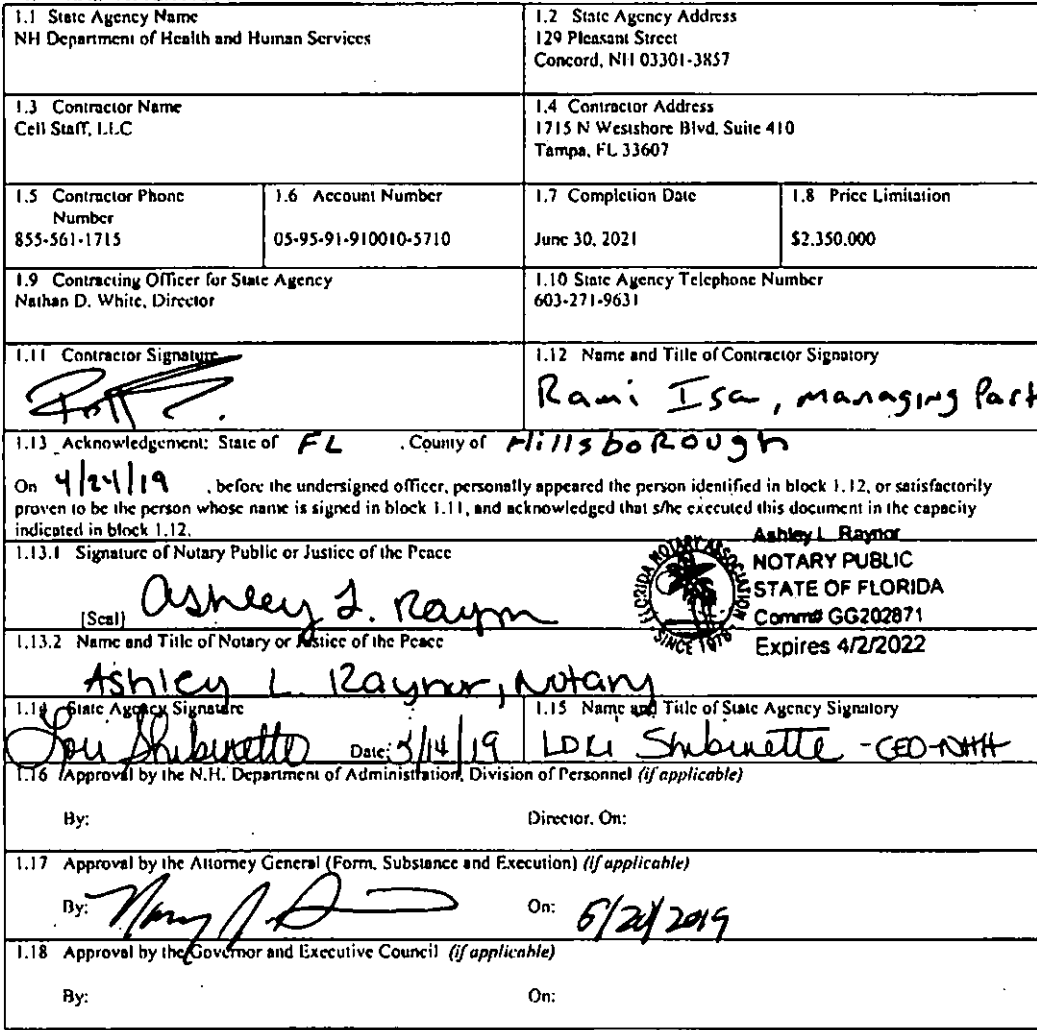 1.1 State Agency Name
NH Department of Health and Human Services
1.2 State Agency Address
129 Pleasant Street
Concord, NH 03301-3857
1.3 Contractor Name
Cell Staff, LLC
1.4 Contractor Address
1715 N Westshore Blvd, Suite 410
Tampa, FL 33607
1.5 Contractor Phone
Number
855-561-1715
1.6 Account Number
05-95-91-910010-5710
1.7 Completion Date
June 30, 2021
1.8 Price Limitation
$2,350,000
1.9 Contracting Officer for State Agency
Nathan D. White, Director
1.10 State Agency Telephone Number
603-271-9631
1.11 Contractor Signature
1.12 Name and Title of Contractor Signatory
Rami Isa, managing Part
1.13 Acknowledgement: State of FL , County of Hillsborough
On 4/24/19 , before the undersigned officer, personally appeared the person identified in block 1.12, or satisfactorily
proven to be the person whose name is signed in block 1.11, and acknowledged that s/he executed this document in the capacity
indicated in block 1.12.
1.13.1 Signature of Notary Public or Justice of the Peace
[Seal] Ashley L. Raynor
FLORIDA NOTARY ASSOCIATION
SINCE 1978
Ashley L Raynor
NOTARY PUBLIC
STATE OF FLORIDA
Comm# GG202871
Expires 4/2/2022
1.13.2 Name and Title of Notary or Justice of the Peace
Ashley L. Raynor, Notary
1.14 State Agency Signature
Lori Shibinette Date: 5/14/19
1.15 Name and Title of State Agency Signatory
Lori Shibinette - CEO-NHH
1.16 Approval by the N.H. Department of Administration, Division of Personnel (if applicable)
By: Director, On:
1.17 Approval by the Attorney General (Form, Substance and Execution) (if applicable)
By: On:
1.18 Approval by the Governor and Executive Council (if applicable)
By: On: